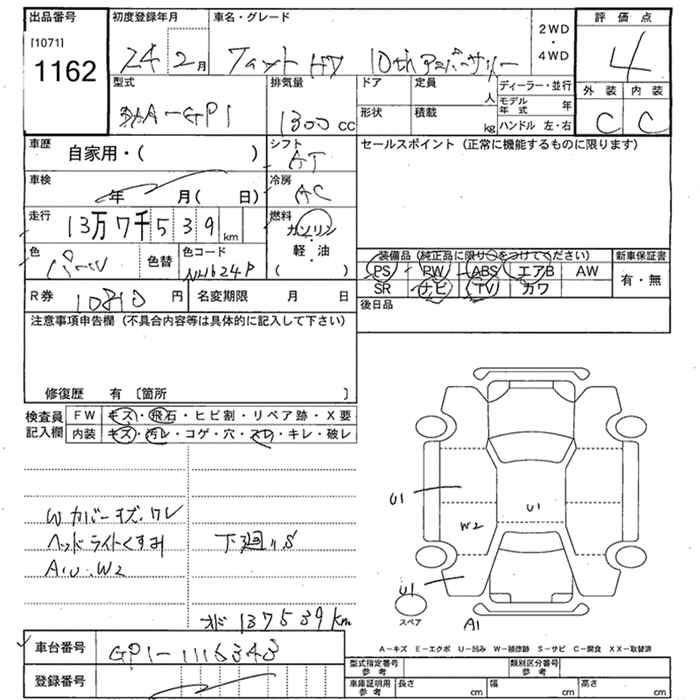 出品番号 初度登録年月 車名・グレード 2WD ・ 4WD 評価点
[1071]
1162 24 2月 フィット HV 10thアニバーサリー 4
型式 排気量 ドア 定員 人 ディーラー・並行 外装 内装
DAA-GP1 1300cc 形状 積載 kg モデル年式 年 C C
ハンドル 左・右
車歴 自家用・( ) シフト AT セールスポイント (正常に機能するものに限ります)
車検 年 月( 日) 冷房 AC
走行 13万7千539km 燃料 ガソリン 軽・油 ( )
色 パール 色替 色コード NH624P
装備品 (純正品に限り○をつけてください) 新車保証書
PS PW ABS エアB AW 有・無
SR ナビ TV カワ
R券 10810円 名変期限 月 日 後日品
注意事項申告欄 (不具合内容等は具体的に記入して下さい)
修復歴 有 〔箇所 〕
検査員記入欄 FW キズ・飛石・ヒビ割・リペア跡・X要
内装 キズ・汚レ・コゲ・穴・スレ・キレ・破レ
Wカバーキズ.ワレ
ヘッドライトくすみ 下廻りS
A.U..W2
U1
U1
W2
U1
A1
スペア
オド 137539km
A-キズ E-エクボ U-凹み W-補修跡 S-サビ C-腐食 XX-交換済
車台番号 GP1-1116343
登録番号
型式指定番号 参考 類別区分番号 参考
車庫証明用 参考 長さ cm 幅 cm 高さ cm